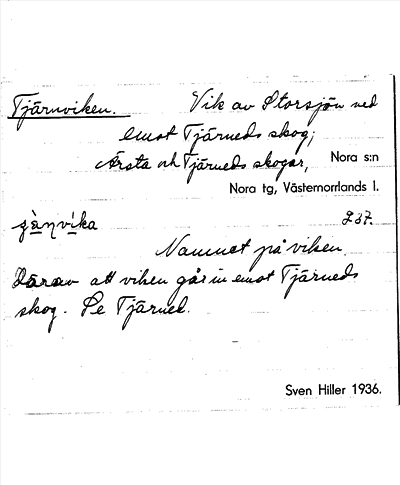 Tjärnviken. Vik av Storsjön ned
emot Tjärneds skog;
Årsta och Tjärneds skogar, Nora s:n
Nora tg, Västernorrlands l.
237.
Namnet på viken.
Därav att viken går in emot Tjärneds
skog. Se Tjärned.
Sven Hiller 1936.